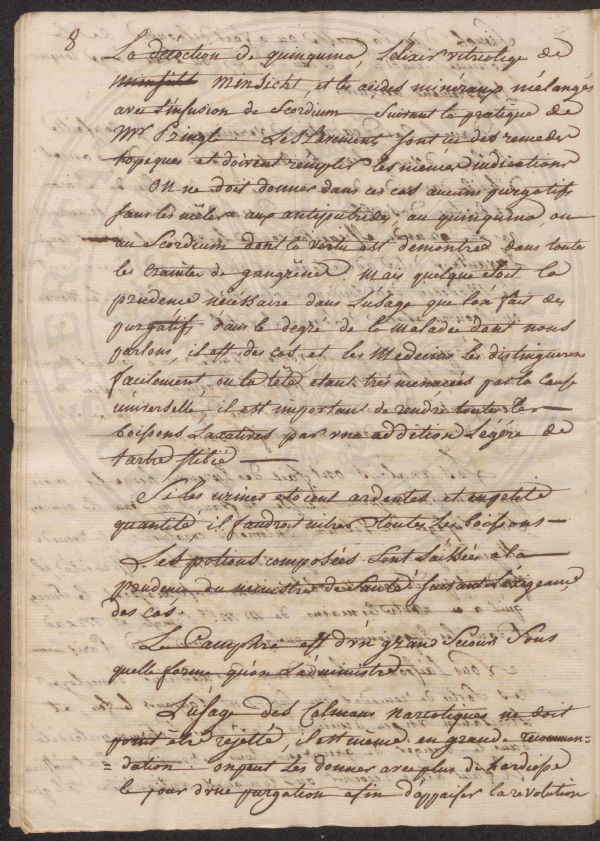 8
La decoction de quinquina, l'élixir vitriolique de
Minsicht, et les acides mineraux mélangés
avec l'infusion de Scordium suivant la pratique de
Mr Pringle les tiennent sont ici des remedes
topeques et doivent remplir les memes indications
On ne doit donner dans ces cas aucuns purgatifs
sans les mêler aux antiputrides, au quinquina, ou
au Scordium dont la vertu est demontrée dans toute
les craintes de gangrêne. Mais quelque soit la
prudence nécéssaire dans l'usage que l'on fait des
purgatifs dans le degré de la maladie dont nous
parlons, il est des cas, et les Medecins les distinguerons
facilement, ou la tête etant trés menacées par la cause
universelle, il est important de rendre toutes les
boissons Laxatives par une addition Légére de
tartre stibié
Si les urines etoient ardentes et en petite
quantité il faudroit nitrer toutes les boissons
Les potions composées sont laissées a la
prudence du ministre de Santé suivant l'éxigeance
des cas.
Le Camphre est d'un grand Secours sous
quelle forme qu'on L'administre
L'usage des Calmans narcotiques ne doit
point etre rejetté, il est même en grande recommon-
=dation on peut Les donner avec plus de hardiesse
le jour d'une purgation afin d'appaiser la révolution